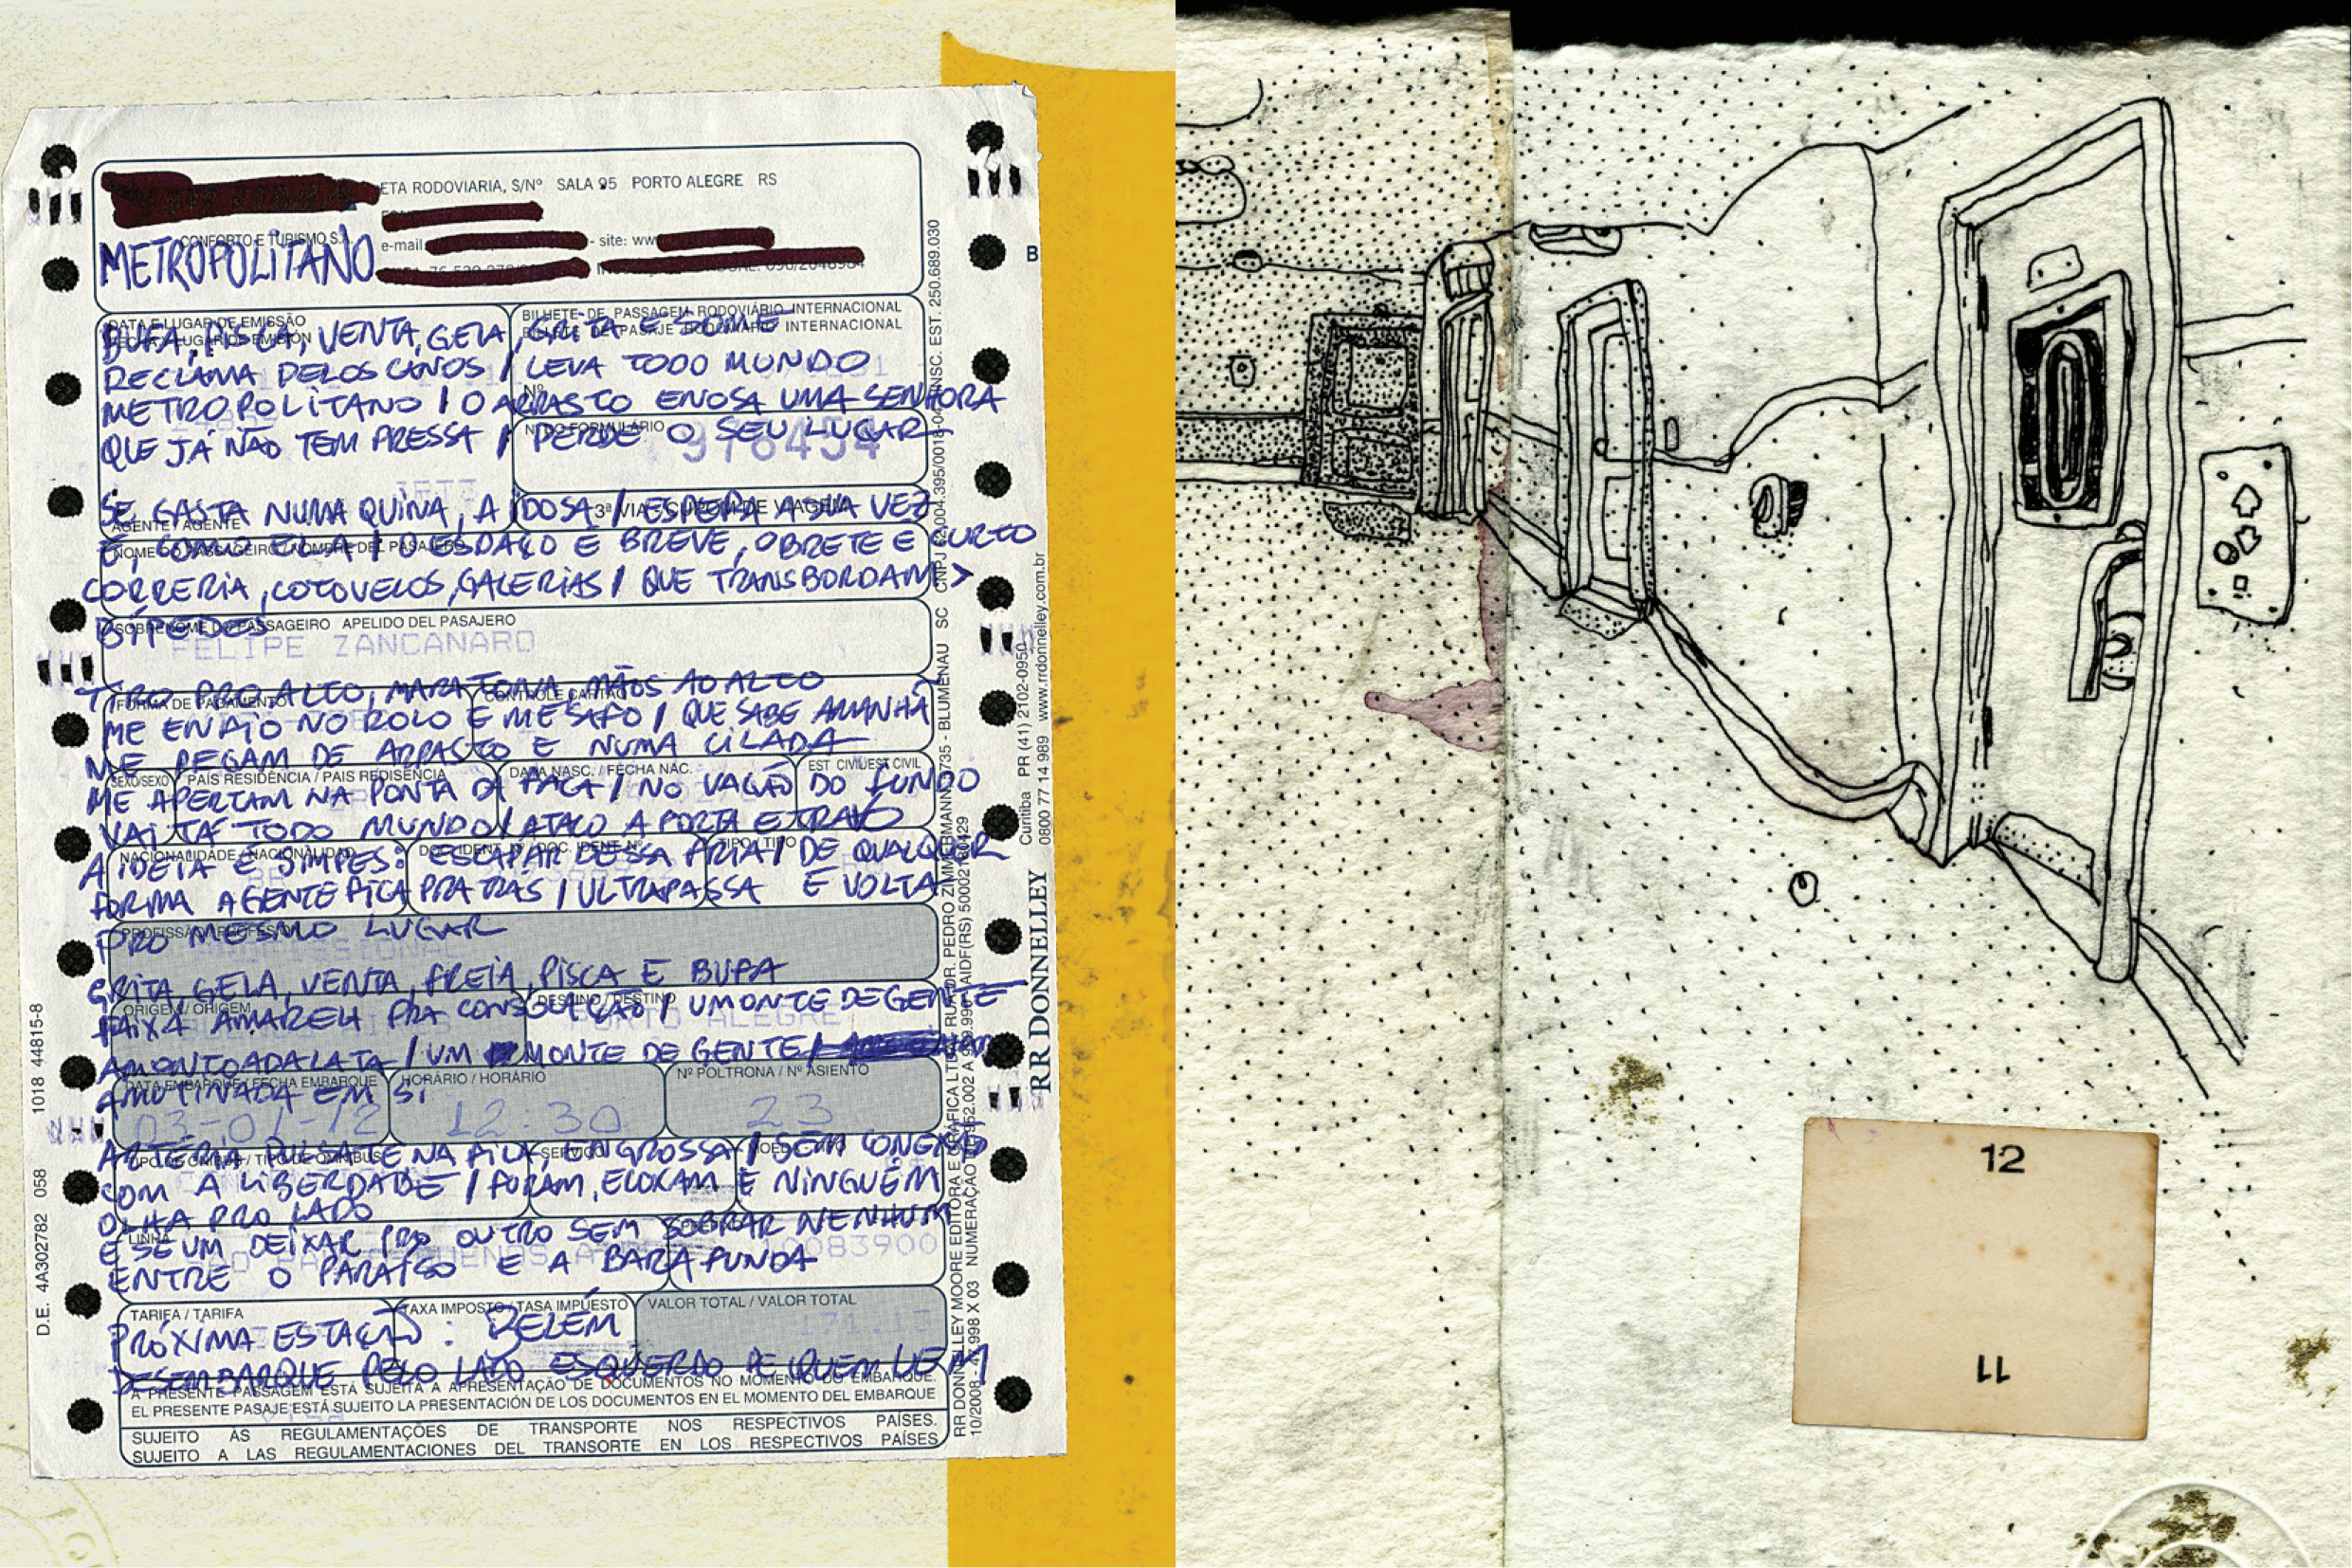 ETA RODOVIARIA, S/Nº SALA 95 PORTO ALEGRE RS
CONFORTO E TURISMO S.A.
e-mail - site: ww
METROPOLITANO
DATA E LUGAR DE EMISSÃO
BILHETE DE PASSAGEM RODOVIÁRIO INTERNACIONAL
BUFA, PISCA, VENTA, GELA, GRITA E SOME
RECLAMA DELOS CANOS / LEVA TODO MUNDO
Nº
METROPOLITANO / O ARRASTO ENOSA UMA SENHORA
Nº DO FORMULÁRIO
QUE JÁ NÃO TEM PRESSA / PERDE O SEU LUGAR
976454
3ª VIA - CUPOM DE VIAGEM
SE GASTA NUMA QUINA, A IDOSA / ESPERA A SUA VEZ
AGENTE / AGENTE
E, COMO ELA / O ESPAÇO É BREVE, O BRETE E CURTO
NOME DO PASSAGEIRO / NOMBRE DEL PASAJERO
CORRERIA, COTOVELOS, GALERIAS / QUE TRANSBORDAM >
BÍPEDES
SOBRENOME DO PASSAGEIRO APELIDO DEL PASAJERO
FELIPE ZANCANARO
TIRO PRO ALTO, MARATONA, MÃOS AO ALTO
FORMA DE PAGAMENTO
CONTROLE CARTÃO
ME ENFIO NO ROLO E ME SAFO / QUE SABE AMANHÃ
ME PEGAM DE ARRASTO E NUMA CILADA
SEXO/SEXO PAÍS RESIDÊNCIA / PAIS REDISENCIA DATA NASC. / FECHA NAC. EST CIVIL/EST CIVIL
ME APERTAM NA PONTA DA FACA / NO VAGÃO DO FUNDO
VAI TÁ TODO MUNDO / ATACO A PORTA E TRAVO
NACIONALIDADE / NACIONALIDAD DOC. IDENT. Nº / DOC. IDENT. Nº TIPO / TIPO
A IDEIA É SIMPES: ESCAPAR DESSA FRIA / DE QUALQUER
FORMA A GENTE FICA PRA TRÁS / ULTRAPASSA E VOLTA
PRO MESMO LUGAR
GRITA, GELA, VENTA, FREIA, PISCA E BUFA
ORIGEM / ORIGEM DESTINO / DESTINO
FAIXA AMARELA PRA CONSOLAÇÃO / UMONTE DE GENTE
PORTO ALEGRE
AMONTOADALATA / UM MONTE DE GENTE /
DATA EMBARQUE / FECHA EMBARQUE HORÁRIO / HORÁRIO Nº POLTRONA / Nº ASIENTO
AMOTINADA EM SI
03-01-12 12:30 23
ARTÉRIA PULSA E NA FILA, ENGROSSA / SEM CONEXÃO
TIPO DE ÔNIBUS / TIPO DE OMNIBUS SERVIÇO
COM A LIBERDADE / FURAM, ECOXAM E NINGUÉM
OLHA PRO LADO
LINHA
E SE UM DEIXAR PRO OUTRO SEM SOBRAR NENHUM
0083900
ENTRE O PARAÍSO E A BARAFUNDA
TARIFA / TARIFA TAXA IMPOSTO / TASA IMPUESTO VALOR TOTAL / VALOR TOTAL
PRÓXIMA ESTAÇÃO: BELÉM
171.13
DESEMBARQUE PELO LADO ESQUERDO DE QUEM VEM
A PRESENTE PASSAGEM ESTÁ SUJEITA A APRESENTAÇÃO DE DOCUMENTOS NO MOMENTO DO EMBARQUE.
EL PRESENTE PASAJE ESTÁ SUJEITO LA PRESENTACIÓN DE LOS DOCUMENTOS EN EL MOMENTO DEL EMBARQUE
SUJEITO ÀS REGULAMENTAÇÕES DE TRANSPORTE NOS RESPECTIVOS PAÍSES.
SUJEITO A LAS REGULAMENTACIONES DEL TRANSORTE EN LOS RESPECTIVOS PAÍSES
D.E. 4A302782 058 1018 44815-8
RR DONNELLEY
Curitiba PR (41) 2102-0950
0800 77 14 989 www.rrdonnelley.com.br
B
12
11